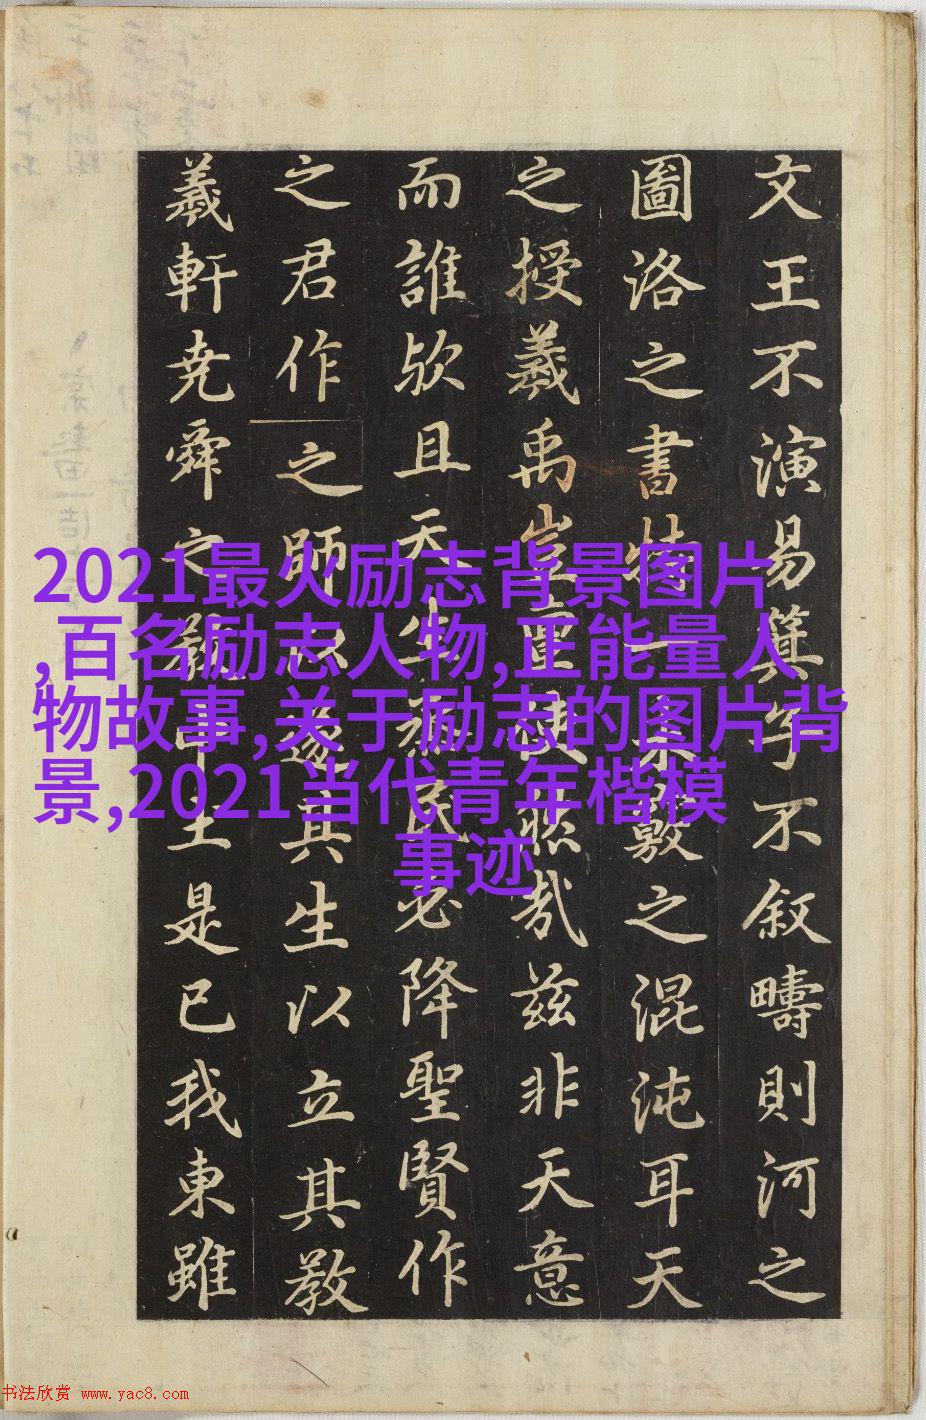 文王不演易箕子不叙疇則河之
圖洛之書特一之混沌耳天
之授羲禹豈亶然哉兹非天意
而誰欤且天生烝民必降聖賢作
之君作之師以遂其生以立其教
羲軒尭舜之王是已我東雖
2021最火励志背景图片
,百名励志人物,正能量人
物故事,关于励志的图片背
景,2021当代青年楷模
事迹
书法欣赏 www.yac8.com